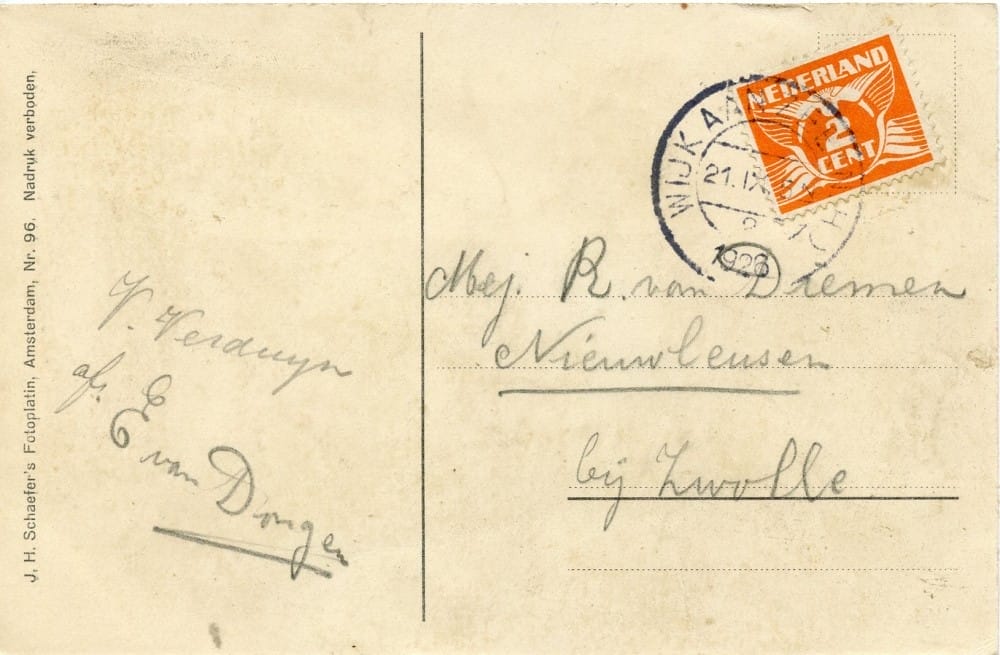 J. H. Schaefer's Fotoplatin, Amsterdam, Nr. 96. Nadruk verboden,
V. Verduyn
afz.
E van Dongen
NEDERLAND
2
CENT
WIJK AAN
21. IX
1926
Mej. R. van Diemen
Nieuwleusen
bij Zwolle